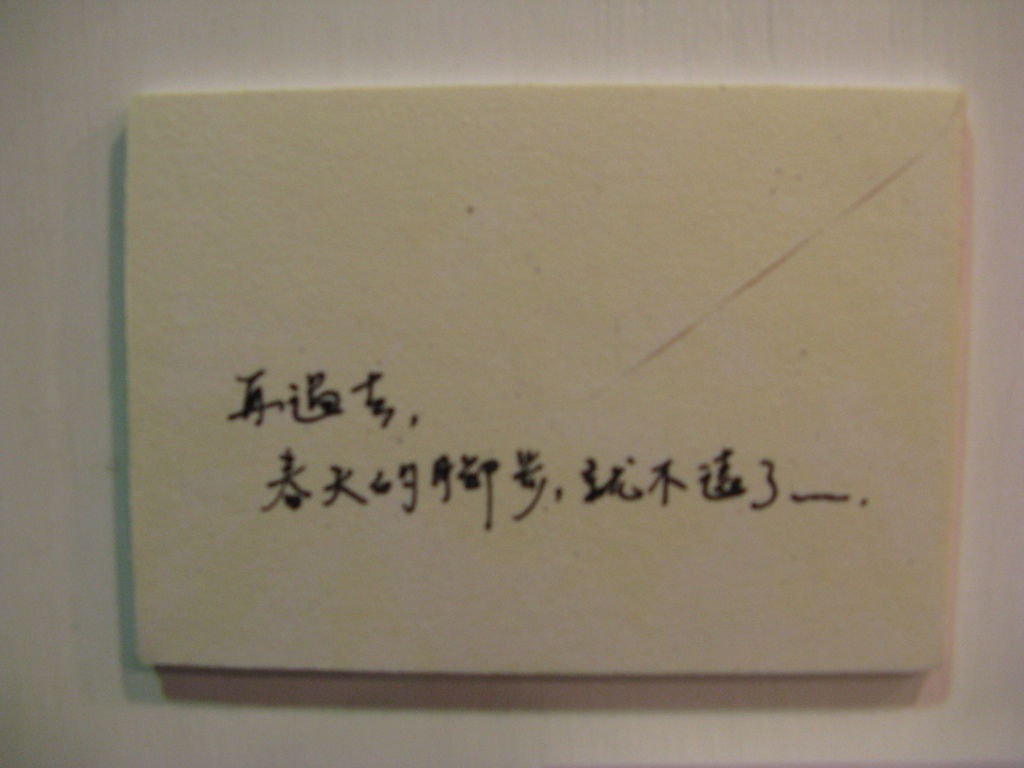 再過去,
春天的腳步,就不遠了—.